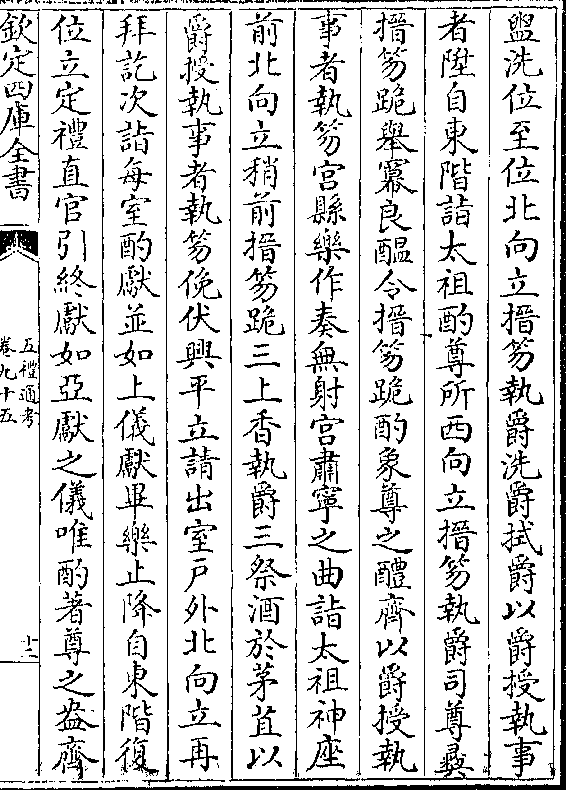 盥洗位至位北向立搢笏執爵洗爵拭爵以爵授執事
者陞自東階詣太祖酌尊所西向立搢笏執爵司尊彞
搢笏跪舉羃良醖令搢笏跪酌象尊之醴齊以爵授執
事者執笏宫縣樂作奏無射宫肅寧之曲詣太祖神座
前北向立稍前搢笏跪三上香執爵三祭酒於茅苴以
爵授執事者執笏俛伏興平立請出室戸外北向立再
拜訖次詣每室酌獻並如上儀獻畢樂止降自東階復
位立定禮直官引終獻如亞獻之儀唯酌著尊之盎齊
欽定四庫全書
五禮通考
卷九十五
十二